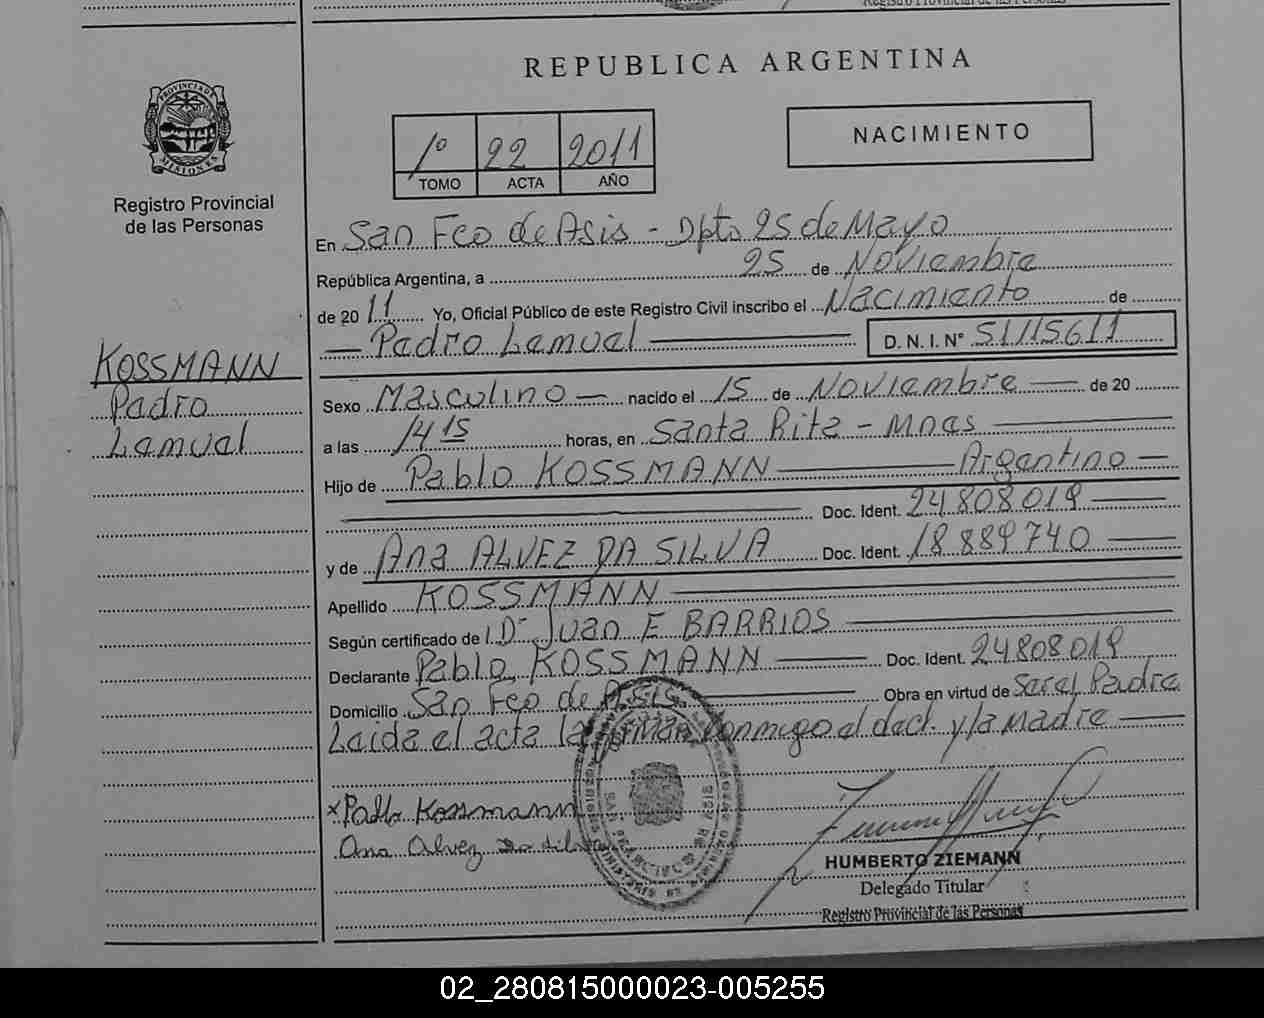 REPUBLICA ARGENTINA
PROVINCIA DE
MISIONES
Registro Provincial
de las Personas
1º 22 2011
TOMO ACTA AÑO
NACIMIENTO
En San Fco de Asis - Dpto 25 de Mayo
República Argentina, a 25 de Noviembre
de 2011 Yo, Oficial Público de este Registro Civil inscribo el Nacimiento de
Pedro Lemuel D. N. I. Nº 51115611
KOSSMANN
Pedro
Lemuel
Sexo Masculino nacido el 15 de Noviembre de 20
a las 14 15 horas, en Santa Rita - Mnes
Hijo de Pablo KOSSMANN Argentino
Doc. Ident. 24808019
y de Ana ALVEZ DA SILVA Doc. Ident. 18889740
Apellido KOSSMANN
Según certificado de Dr Juan E BARRIOS
Declarante Pablo KOSSMANN Doc. Ident. 24808019
Domicilio San Fco de Asis Obra en virtud de Ser el Padre
Leida el acta la firman conmigo el decl. y la Madre
x Pablo Kossmann
Ana Alvez Da silva
HUMBERTO ZIEMANN
Delegado Titular
Registro Provincial de las Personas
02_280815000023-005255